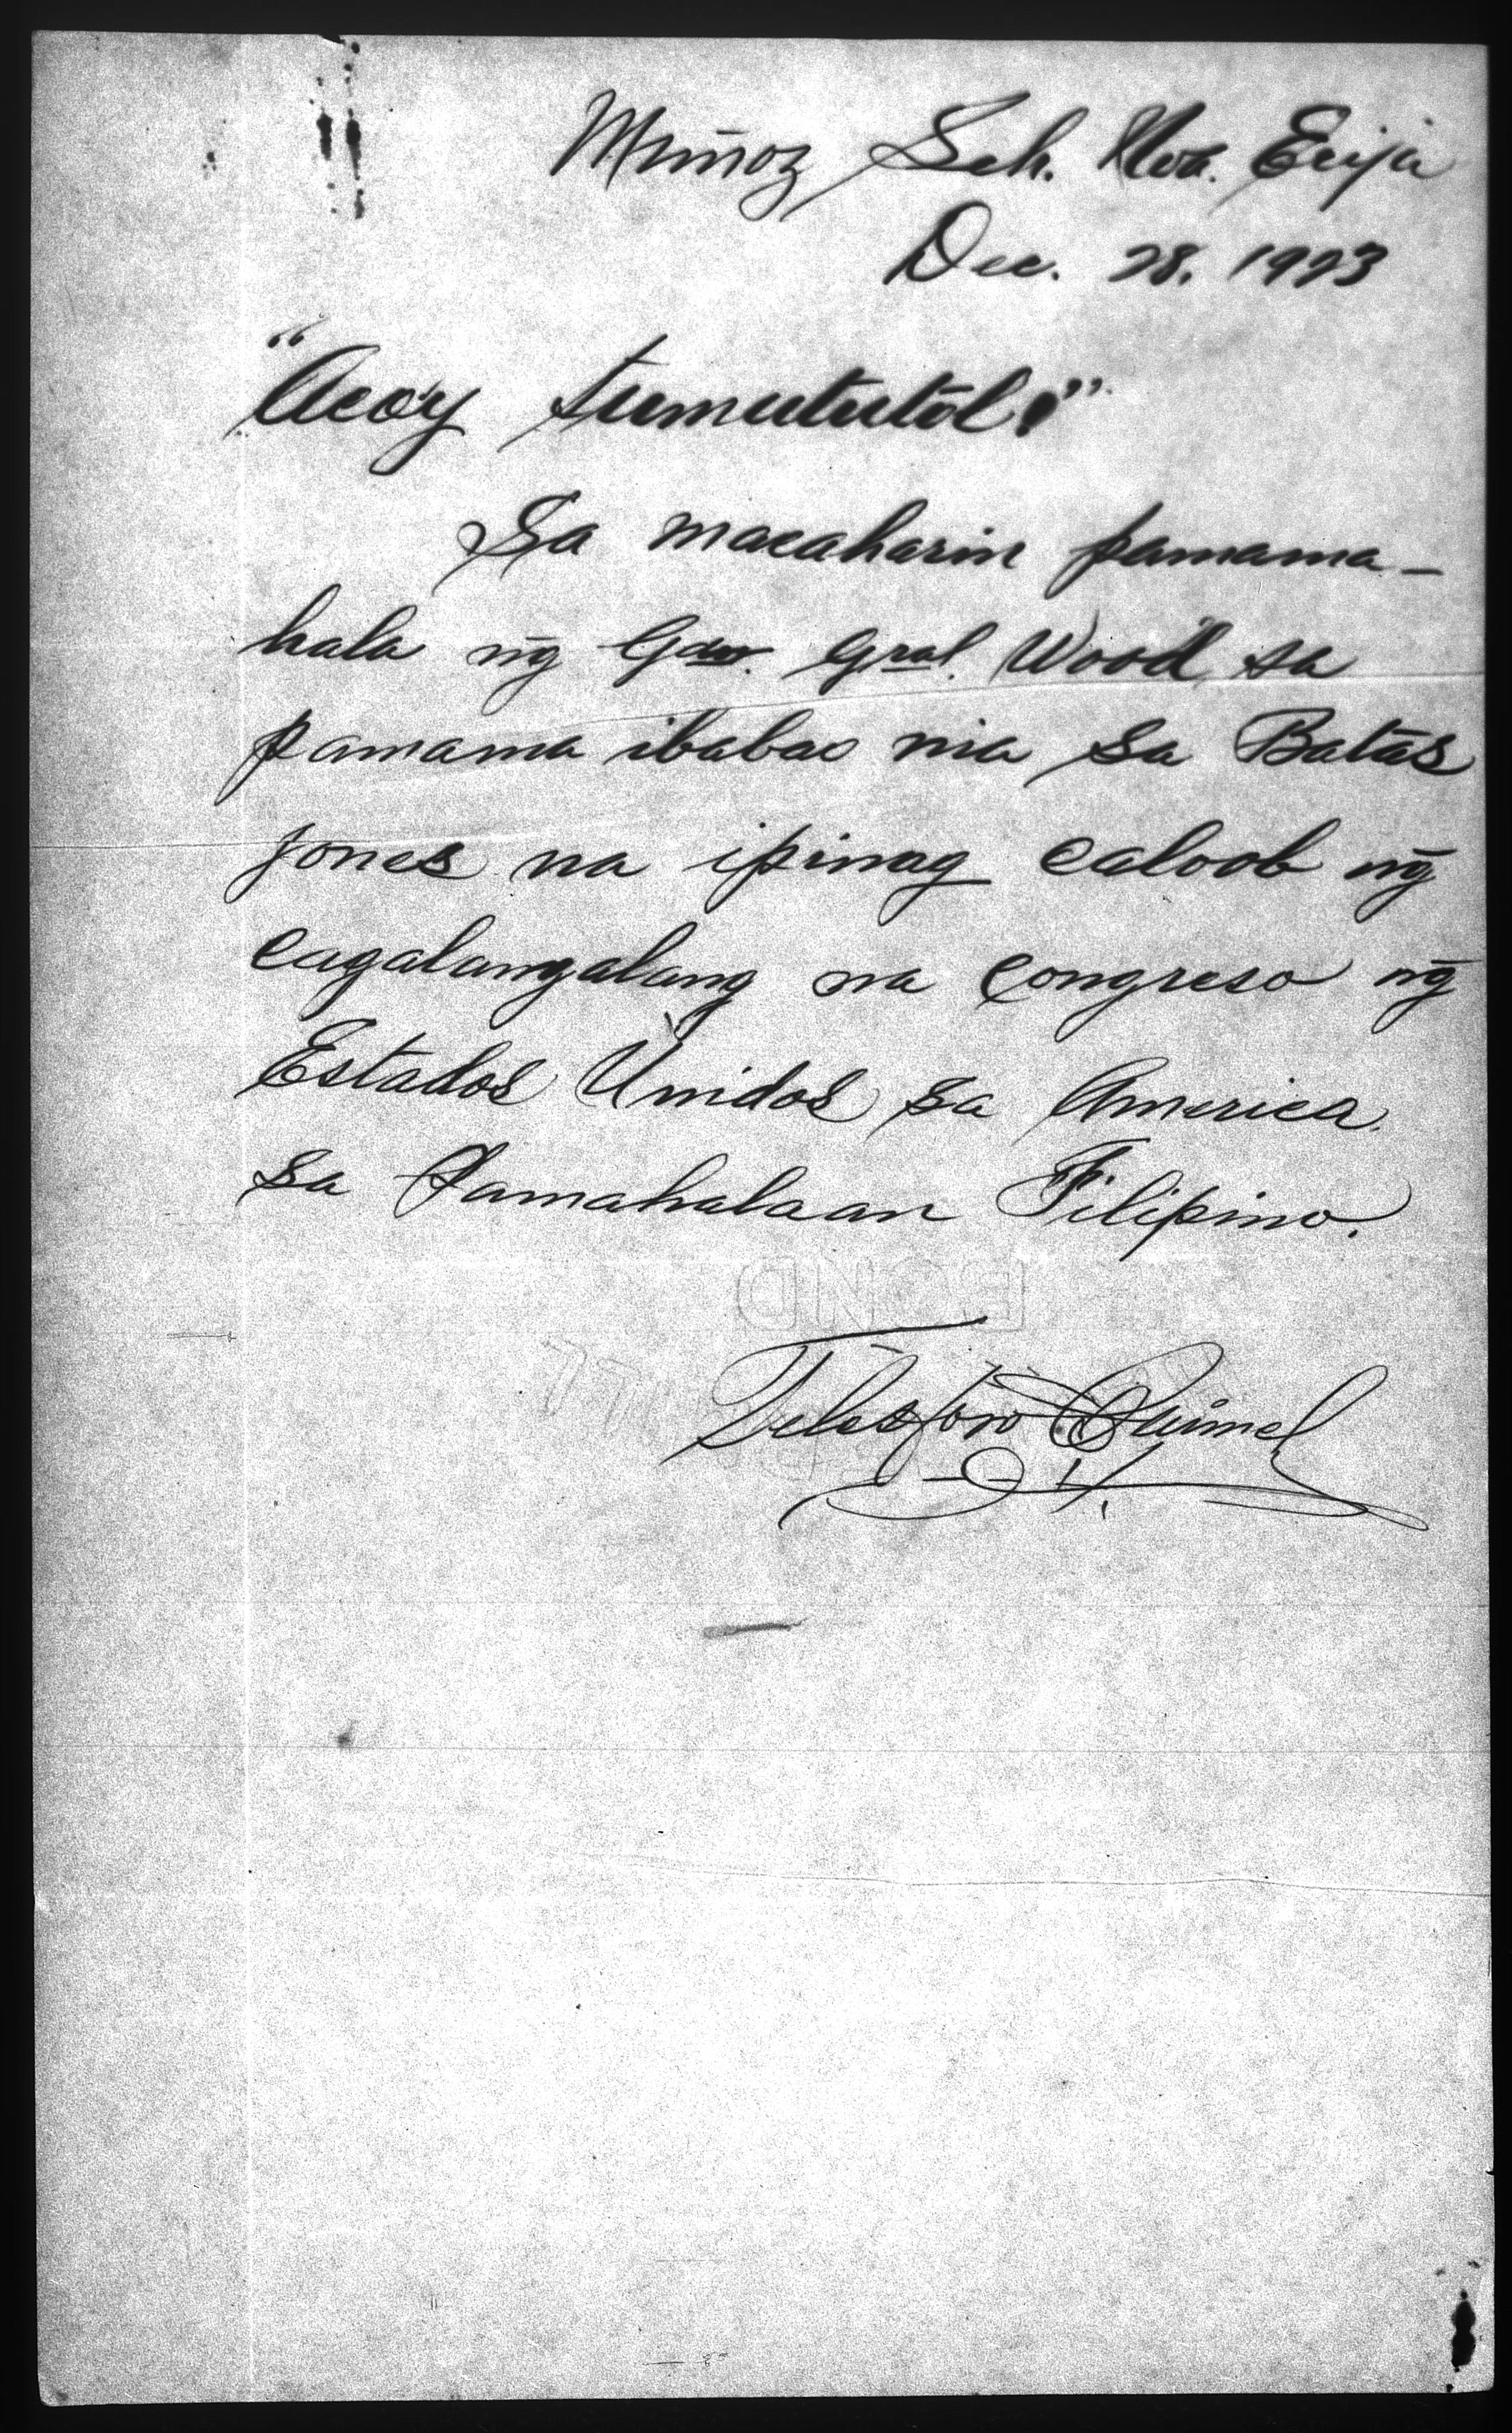 Muñoz Sch. Nva. Ecija
Dec. 28, 1923
"Aco'y tumututol!"
Sa macaharin pamama-
hala ng̃ Gov. Gral. Wood sa
pamama ibabao nia sa Batas
Jones na ipinag caloob ng̃
cagalanggalang na Congreso ng̃
Estados Unidos sa America.
sa Pamahalaan Filipino.
BOND
Telesforo